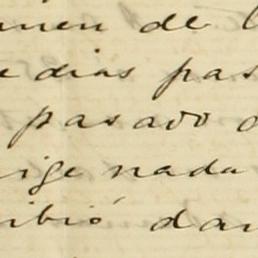 men de l
e dias pas
pasado o
ige nada
ibió dan